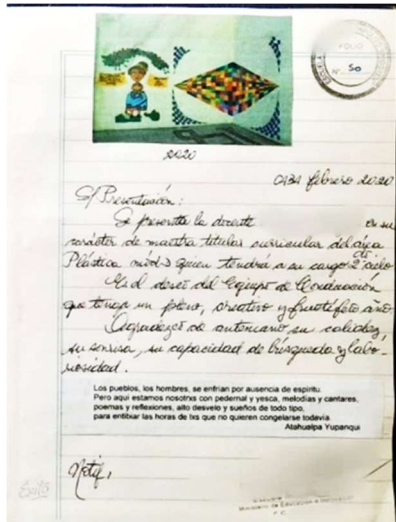 FOLIO
Nº 50
2020
CABA febrero 2020
S/ Presentación:
Se presenta la docente en su
carácter de maestra titular curricular del área
Plástica quien tendrá a su cargo 2º ciclo
Es el deseo del Equipo de Conducción
que tenga un pleno, creativo y fructífero año.
Agradezco de antemano, su calidez,
su sonrisa, su capacidad de búsqueda y labo-
riosidad.
Los pueblos, los hombres, se enfrían por ausencia de espíritu.
Pero aquí estamos nosotrxs con pedernal y yesca, melodías y cantares,
poemas y reflexiones, alto desvelo y sueños de todo tipo,
para entibiar las horas de lxs que no quieren congelarse todavía.
Atahualpa Yupanqui
Notif.
Ministerio de Educación e Innovación